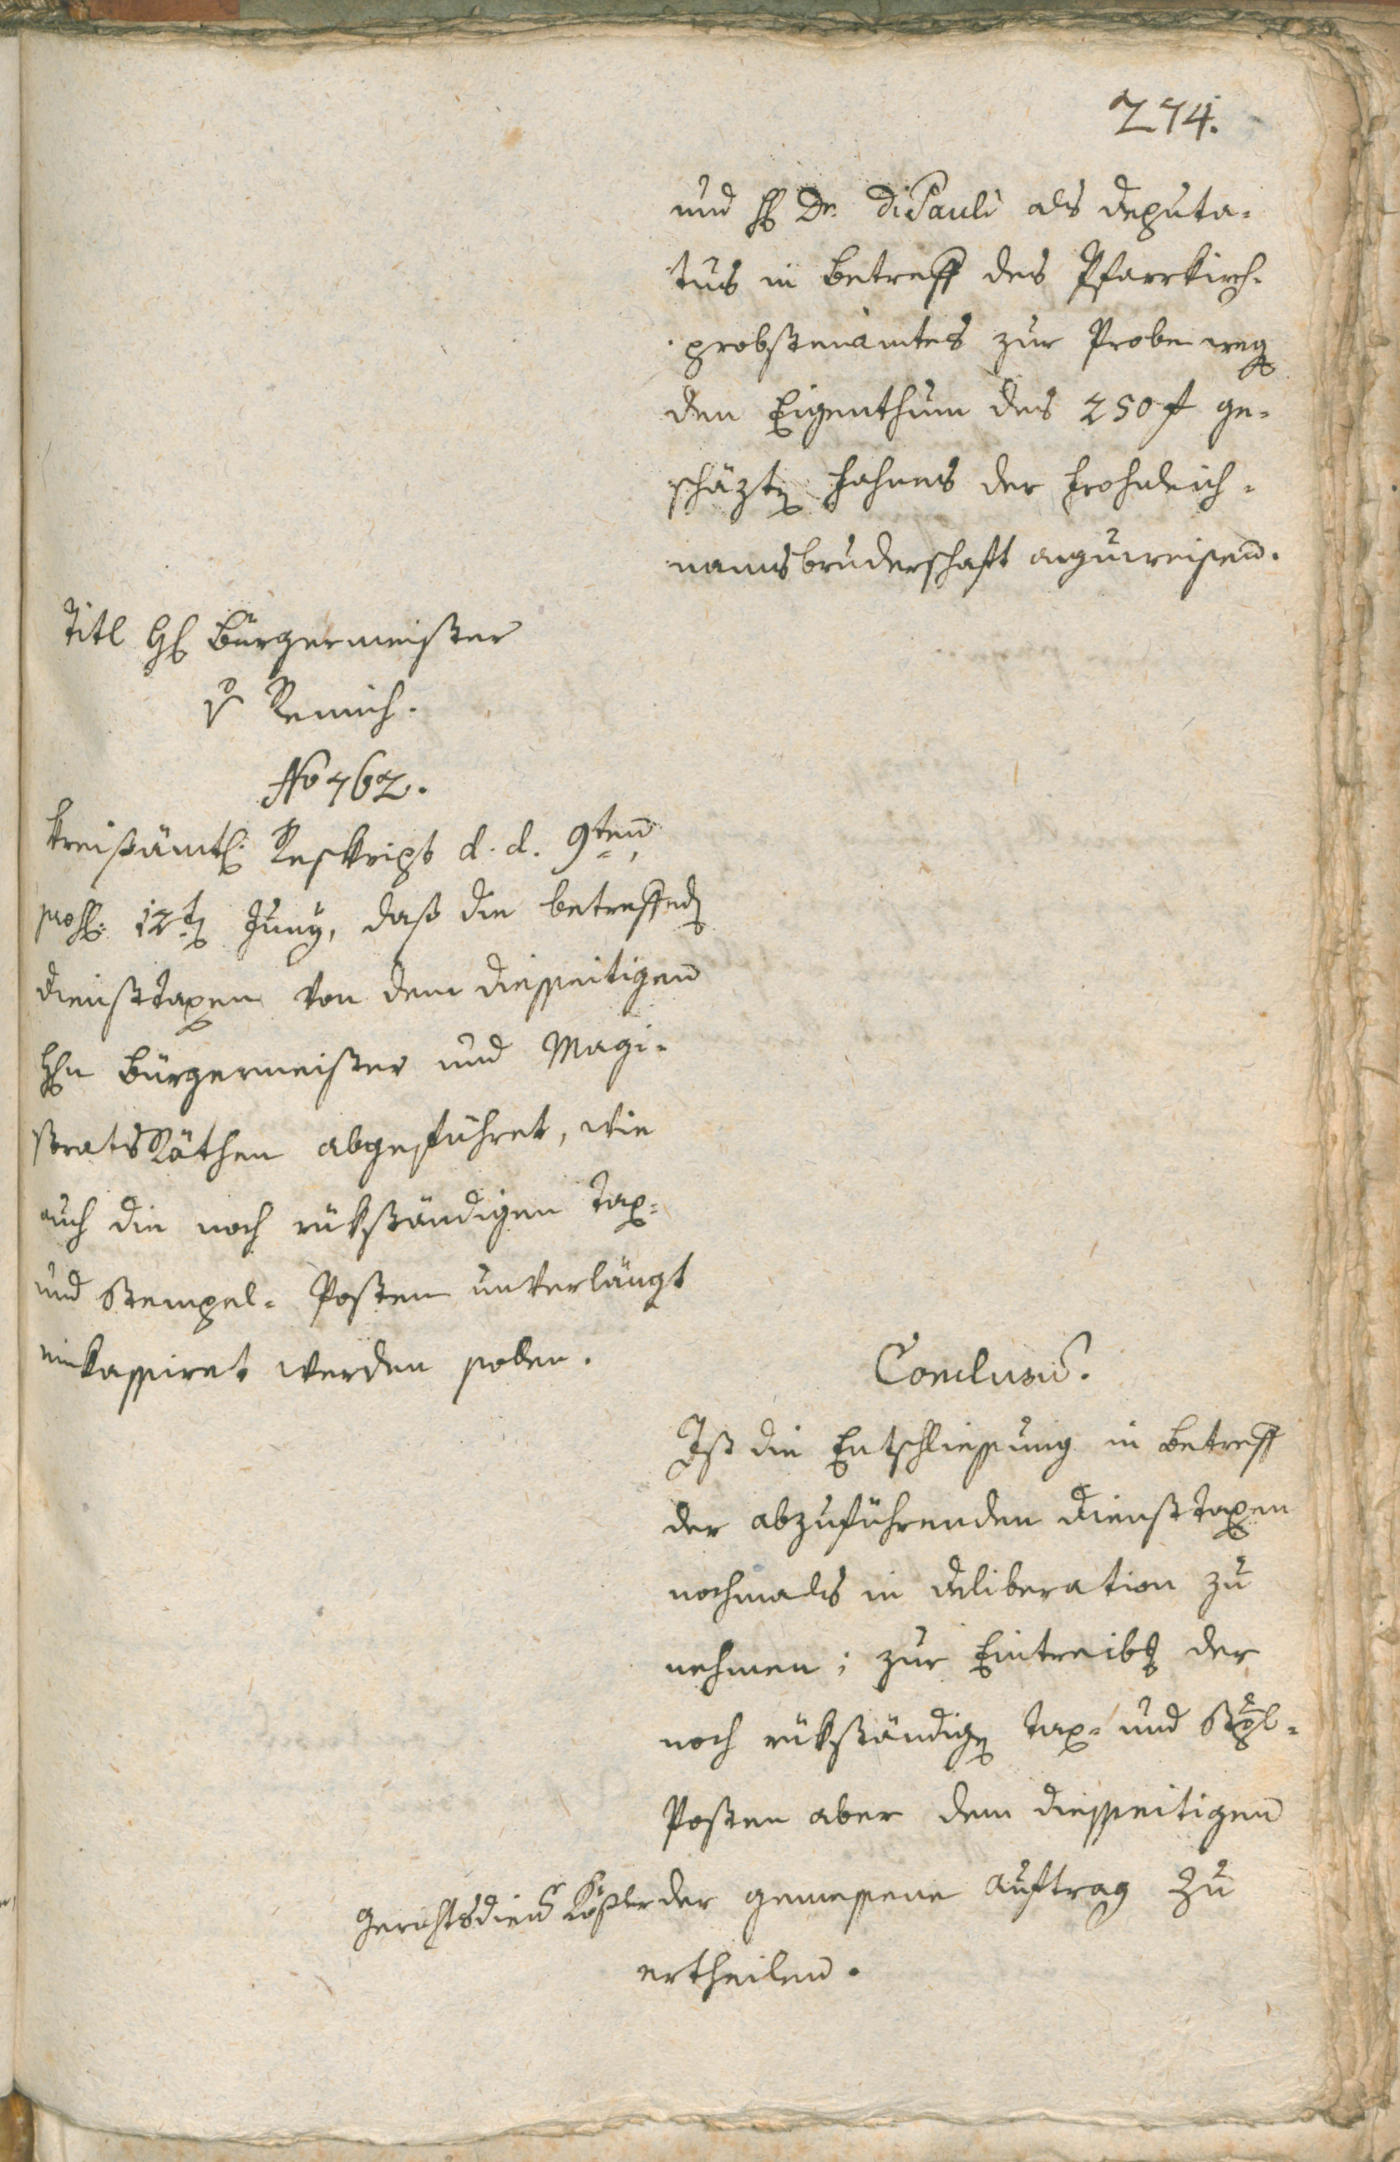 274.
und H Dr. di Pauli als deputa-
tus in betreff des Pfarrkirch-
probstenamtes zur Probe weg
den Eigenthum des 250 f ge-
schäzten Fahnes der frohnleich-
namsbruderschaft anzuweisen.
Titl H Bürgermeister
v Remich.
No 762.
kreißämtl. Reskript d. d. 9ten,
12t Juny, daß die betreffend
diensttaxen von dem diesseitigen
Hn Bürgermeister und Magi-
strats Räthen abgeführet, wie
auch die noch rükständigen tax-
und Stempel- Posten unverlängt
einkassiret werden solen.
Conclusu.
Ist die Entschliessung in betreff
der abzuführenden diensttaxen
nochmals in deliberation zu
nehmen; zur Eintreibg der
noch rükständign tax- und Stpl-
Posten aber dem diesseitigen
Gerichtsdien der gemessene auftrag zu
ertheilen.